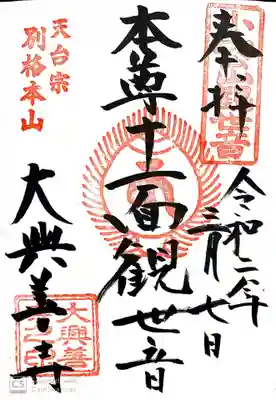 奉拝
令和二年
三月七日
本尊十一面観世音
天台宗
別格本山
大興善寺
大興善
寺印
CS